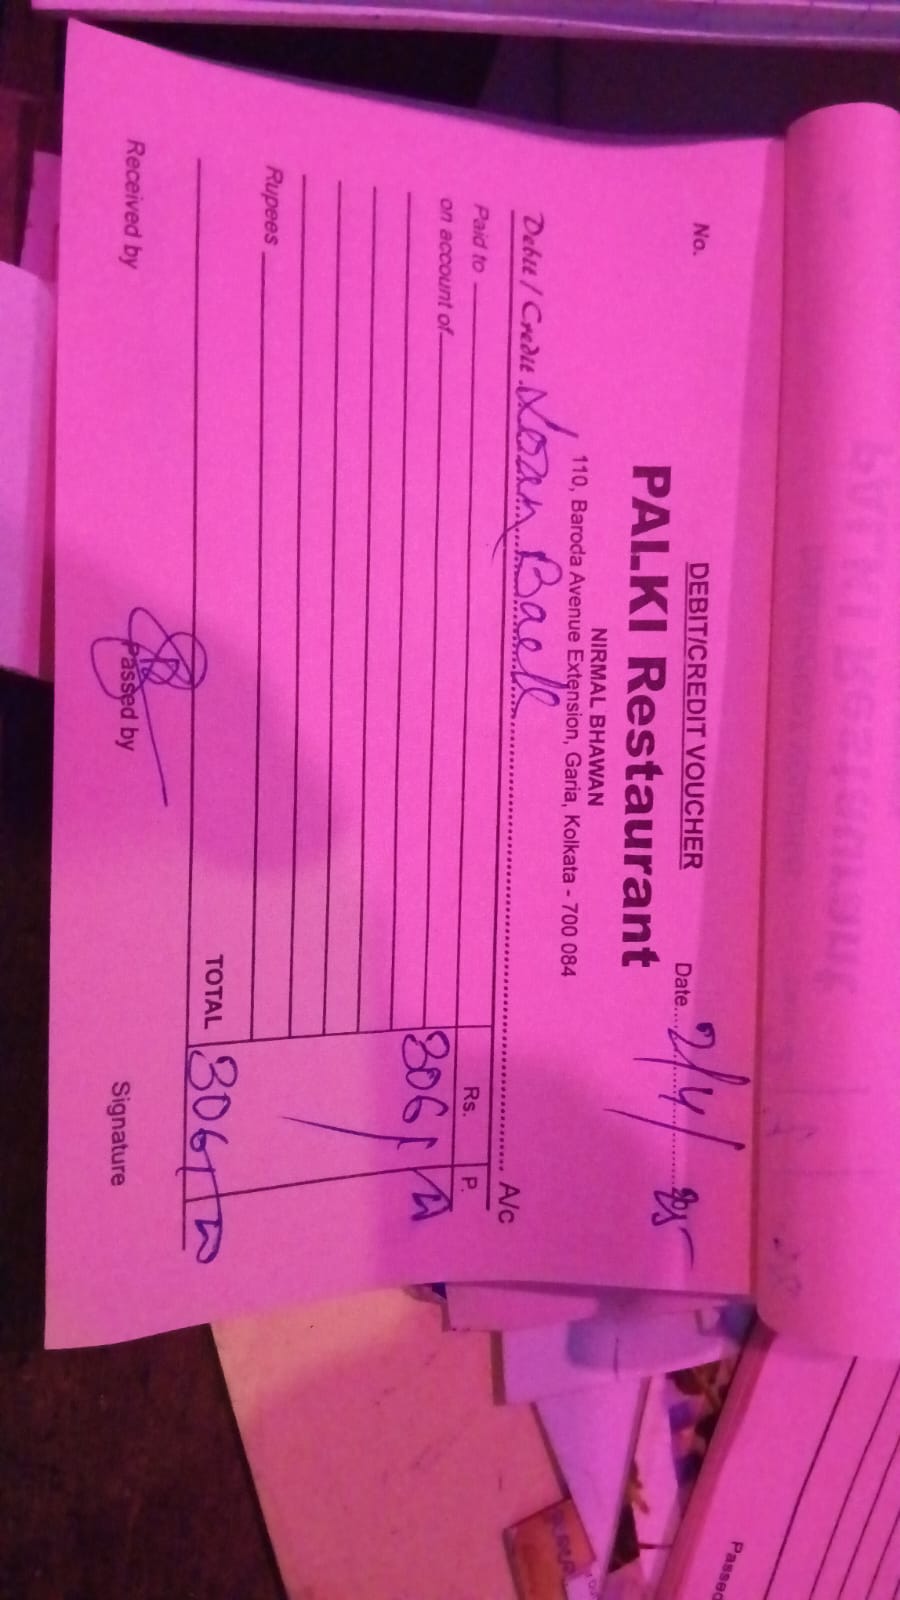 DEBIT/CREDIT VOUCHER
No.
Date 2/4/25
PALKI Restaurant
NIRMAL BHAWAN
110, Baroda Avenue Extension, Garia, Kolkata - 700 084
Debit / Credit Loan A/c
Paid to
Rs. P.
on account of
Rupees
TOTAL
Received by
Passed by
Signature